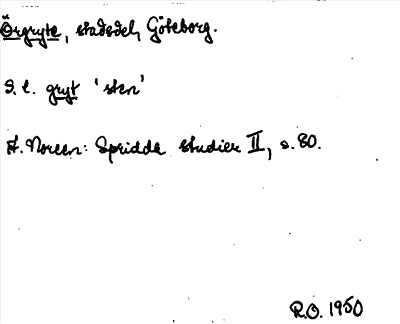 Örgryte, stadsdel, Göteborg.
S. l. gryt 'sten'
A. Noreen: Spridda studier II, s. 80.
R.O. 1950